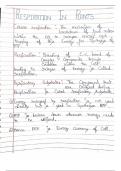 RESPIRATION IN POINTS
Cellular respiration : The mechanism of
breakdown of food materials
within the cell to release energy, and
of this Energy for synthesis of
Respiration : Breaking of C-C bond of
Complex Compounds through
Oxidation within the Cells,
leading to release of Energy is Called
Respiration.
Respiratory Substrates : The Compounds that
are Oxidized during
Respiration is Called Respiratory Substrates.
Energy released by respiration is not used
directly but is used to Synthesize ATP.
ATP is broken down whenever energy needs
to be utilized.
Hence ATP is Energy Currency of Cell.